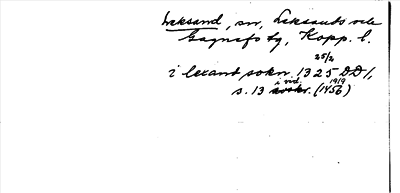 Leksand, sn, Leksands och
Gagnefs tg, Kopp. l.
25/2
i lexand sokn 1325 DD 1,
s. 13 i vid. 1919 (1456)